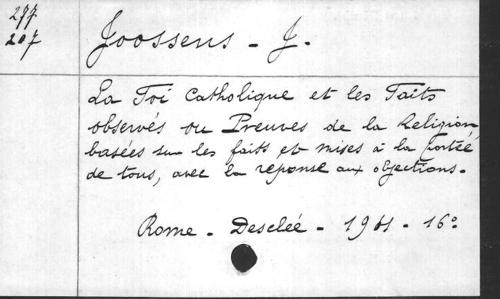 277
207
Joossens - J.
La Foi Catholique et les Faits
observés ou Preuves de la Religion,
basées sur les faits et mises à la portée
de tous, avec la réponse aux objections.
Rome - Desclée - 1901 - 16°